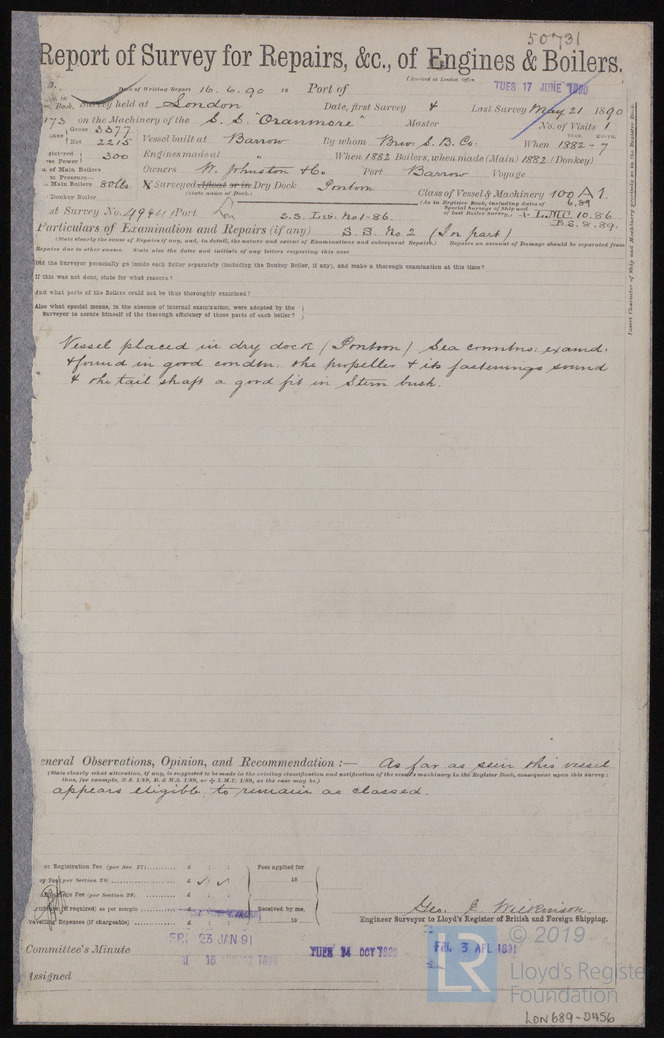 50731
Report of Survey for Repairs, &c., of Engines & Boilers.
(Received at London Office,
TUES 17 JUNE 1890
Date of Writing Report 16.6.90 Port of
Book. Survey held at London Date, first Survey 4 Last Survey May 21 1890
173 on the Machinery of the S.S. "Oranmore" Master No. of Visits 1
Gross 3377
Net 2215 Vessel built at Barrow By whom Brw. S. B. Co: When 1882-7
YEAR. MONTH.
300 Engines made at " When 1882 Boilers, when made (Main) 1882 (Donkey)
of Main Boilers Owners W. Johnston & Co Port Barrow Voyage
Main Boilers 80 lbs. Surveyed Afloat or in Dry Dock Pontoon
(State name of Dock.)
Class of Vessel & Machinery 100 A 1.
(As in Register Book, including dates of Special Surveys of Ship and of last Boiler Survey.) 6.89
L.M.C. 10.86
B.S. 8.89.
Donkey Boiler
st Survey No. Port Lon S.S. Liv. No 1-86.
Particulars of Examination and Repairs (if any) S.S. No 2 (In part)
(State clearly the cause of Repairs if any, and, in detail, the nature and extent of Examinations and subsequent Repairs.) Repairs on account of Damage should be separated from
Repairs due to other causes. State also the dates and initials of any letters respecting this case
Did the Surveyor personally go inside each Boiler separately (including the Donkey Boiler, if any), and make a thorough examination at this time?
If this was not done, state for what reasons?
And what parts of the Boilers could not be thus thoroughly examined?
Also what special means, in the absence of internal examination, were adopted by the
Surveyor to assure himself of the thorough efficiency of those parts of each boiler?
Insert Character of Ship and Machinery precisely as in the Register Book.
Vessel placed in dry dock (Pontoon) Sea conntns: examd.
& found in good condtn. the propeller & its fastenings sound
& the tail shaft a good fit in Stern bush.
eneral Observations, Opinion, and Recommendation :— As far as seen this vessel
(State clearly what alteration, if any, is suggested to be made in the existing classification and notification of the vessel's machinery in the Register Book, consequent upon this survey:
thus, for example, B.S. 1/89, B. & M.S. 1/89, or L.M.C. 1/89, as the case may be.)
appears eligible to remain as classed.
or Registration Fee (per Sec. 27) £ : : Fees applied for
ey Fee (per Section 28) £ 18
Fee (per Section 28) £
if required) as per margin £ Received by me,
Travelling Expenses (if chargeable) £ 18
Geo. E. Wilkinson.
Engineer Surveyor to Lloyd's Register of British and Foreign Shipping.
Committee's Minute FRI 23 JAN 91 TUES 14 OCT 1890 FRI. 3 APL 1891
Assigned
LR © 2019
Lloyd's Register
Foundation
LDN689-0456